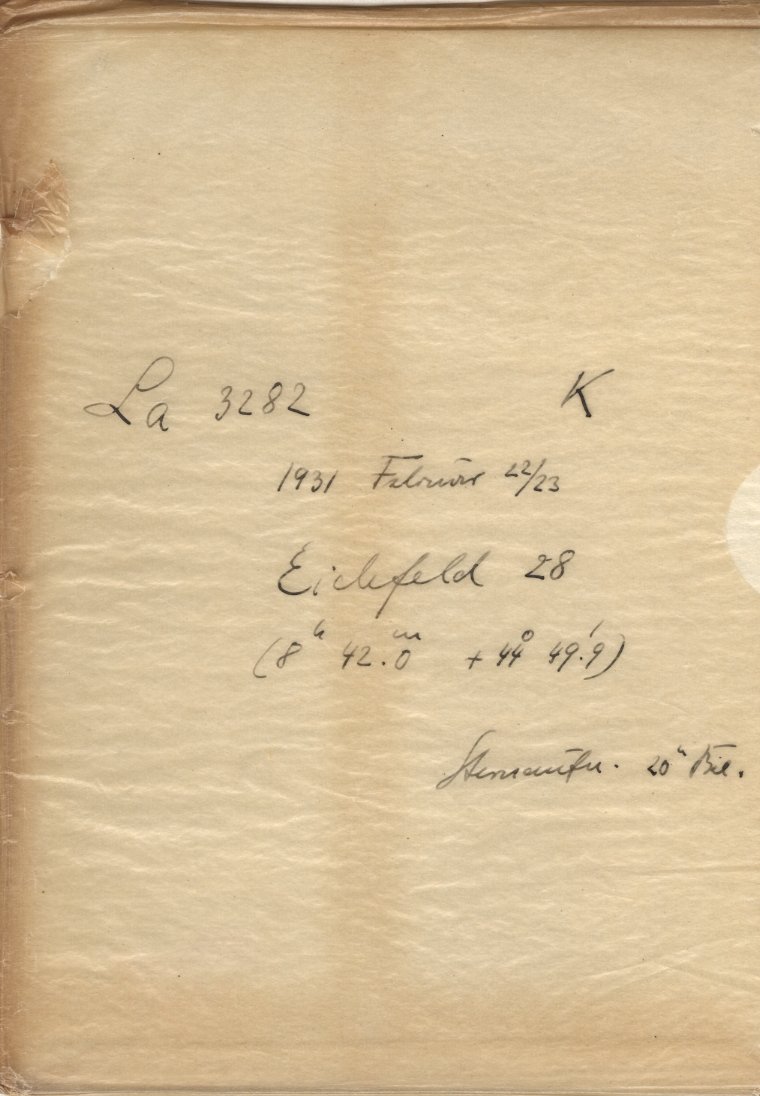 La 3282 K
1931 Februar 22/23
Eichfeld 28
(8ʰ 42.ᵐ0 + 44° 49.'9)
Sternaufn. 20ʰ